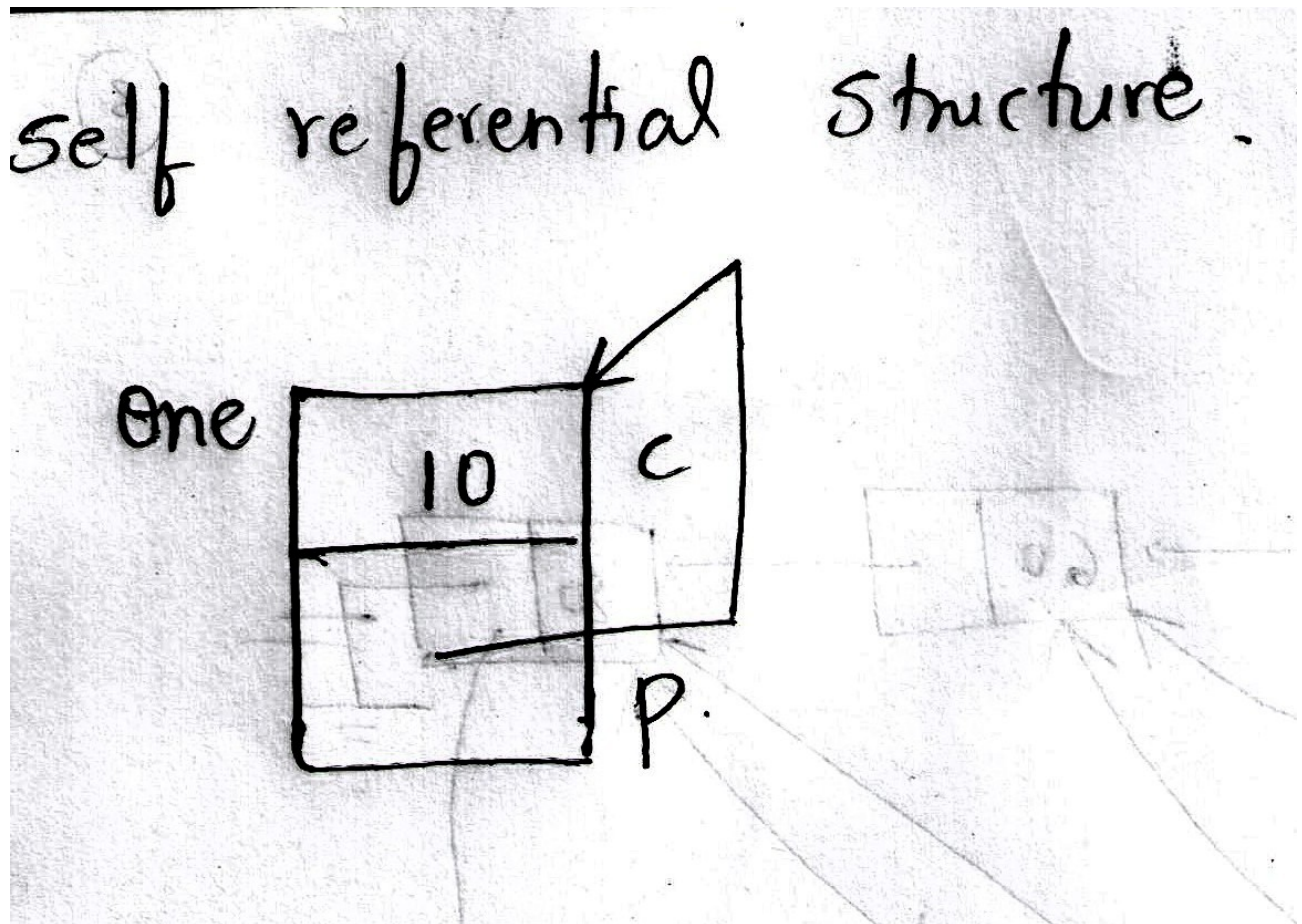 self referential structure.
One
10
C
P.